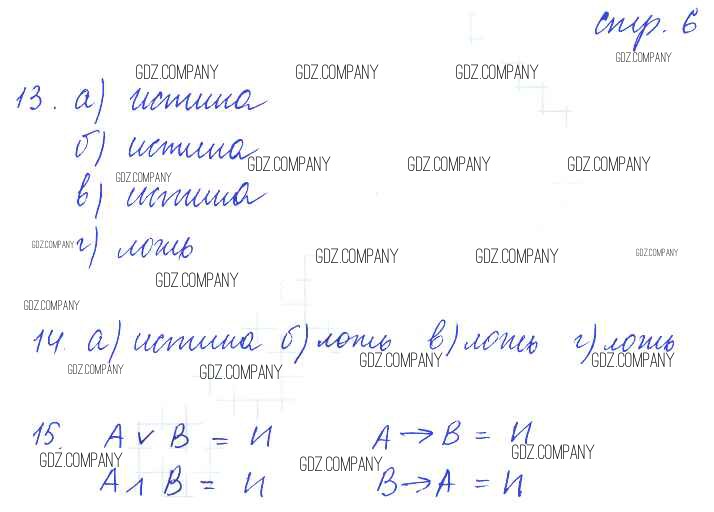 стр. 6
GDZ.COMPANY
GDZ.COMPANY GDZ.COMPANY GDZ.COMPANY
13. а) истина
б) истина
GDZ.COMPANY GDZ.COMPANY GDZ.COMPANY
GDZ.COMPANY
в) истина
GDZ.COMPANY г) ложь
GDZ.COMPANY GDZ.COMPANY GDZ.COMPANY
GDZ.COMPANY
GDZ.COMPANY
14. а) истина б) ложь в) ложь г) ложь
GDZ.COMPANY GDZ.COMPANY
GDZ.COMPANY GDZ.COMPANY
15. A ∨ B = И A → B = И
GDZ.COMPANY GDZ.COMPANY GDZ.COMPANY
A ∧ B = И B → A = И